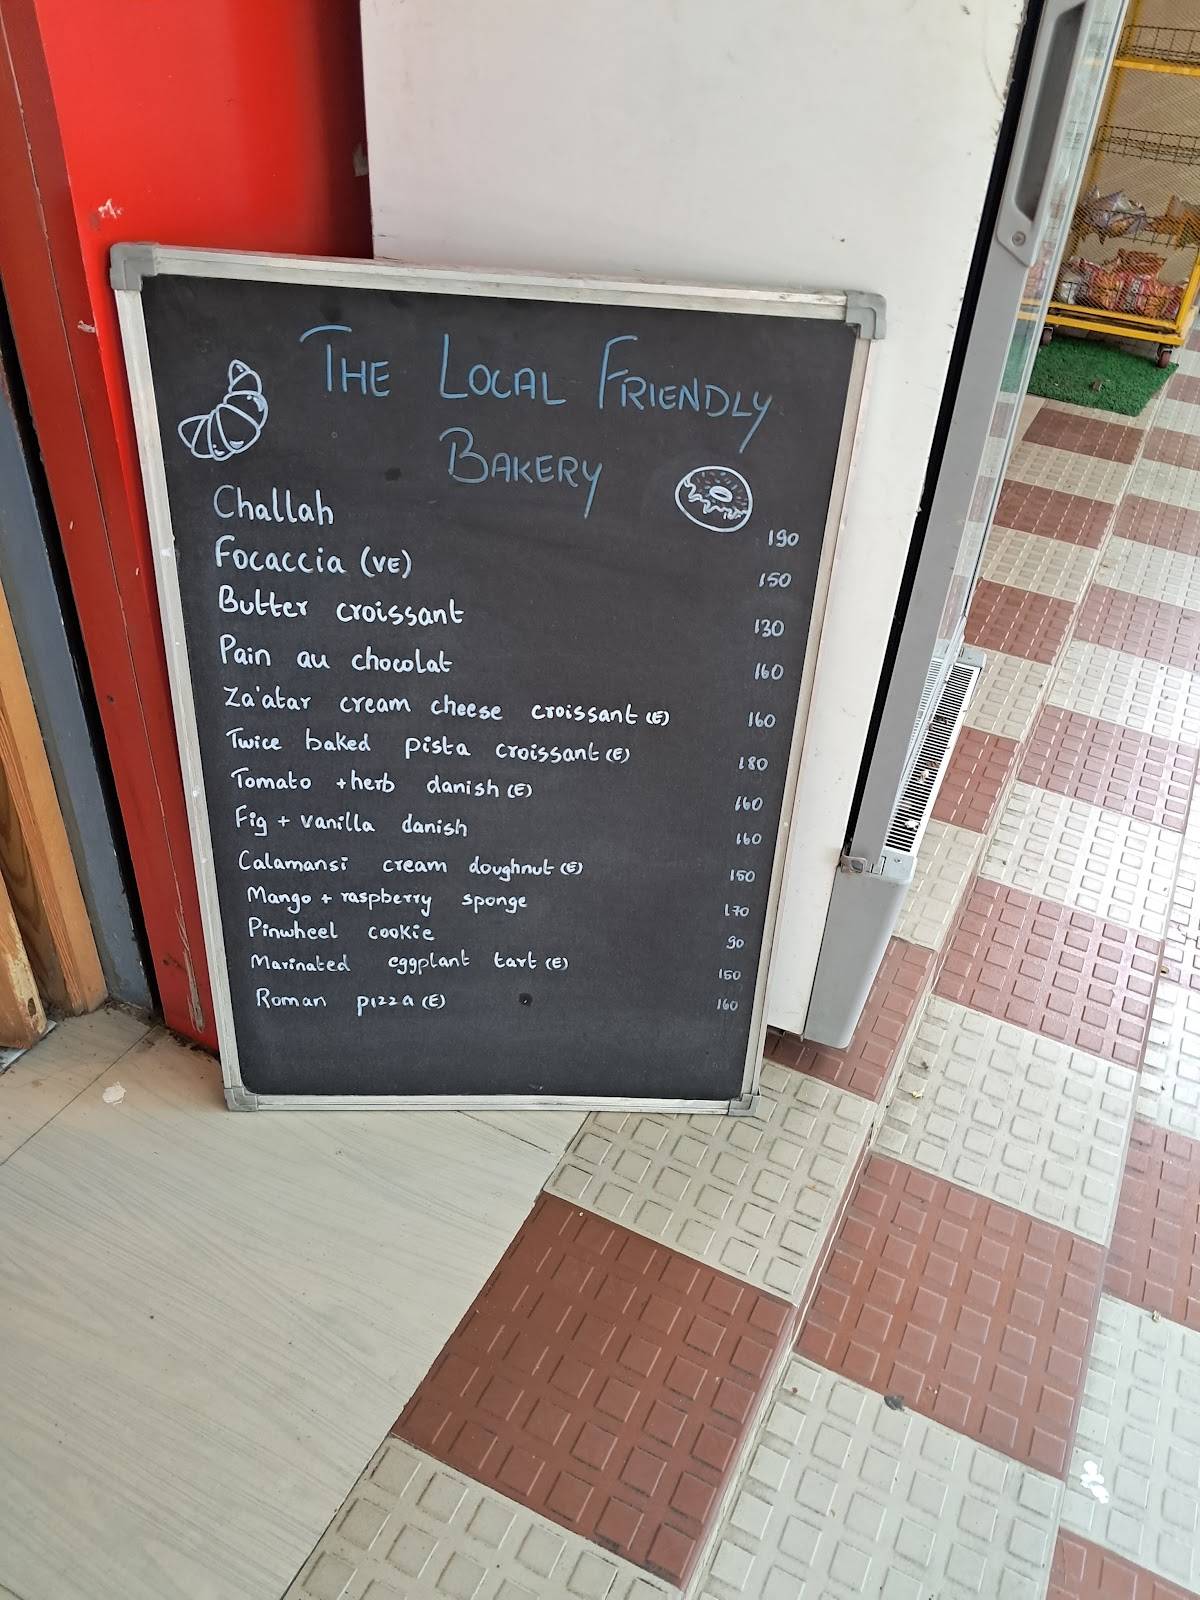 THE LOCAL FRIENDLY
BAKERY
Challah 190
Focaccia (VE) 150
Butter croissant 130
Pain au chocolat 160
Za'atar cream cheese croissant (E) 160
Twice baked pista croissant (E) 180
Tomato + herb danish (E) 160
Fig + vanilla danish 160
Calamansi cream doughnut (E) 150
Mango + raspberry sponge 170
Pinwheel cookie 90
Marinated eggplant tart (E) 150
Roman pizza (E) 160